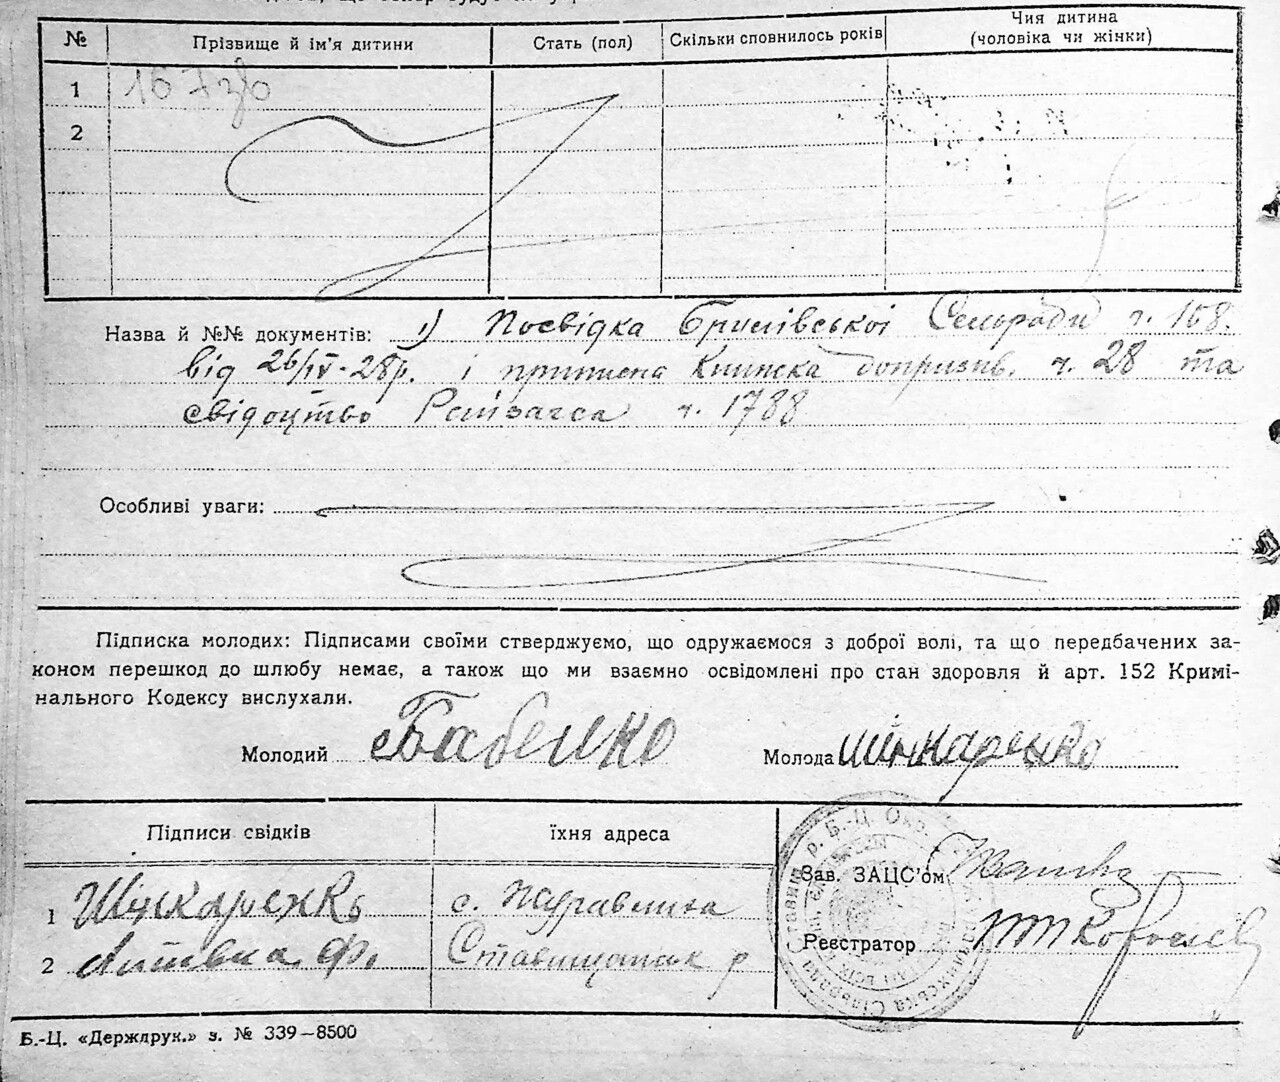 № Прізвище й ім'я дитини Стать (пол) Скільки сповнилось років Чия дитина
(чоловіка чи жінки)
1
2
Назва й №№ документів: 1) Посвідка Брилівської Сельради ч. 168.
від 26/IV-28р. і приписна Книжка допризив. ч. 28 та
свідоцтво ч. 1788
Особливі уваги:
Підписка молодих: Підписами своїми стверджуємо, що одружаємося з доброї волі, та що передбачених за-
коном перешкод до шлюбу немає, а також що ми взаємно освідомлені про стан здоровля й арт. 152 Кримі-
нального Кодексу вислухали.
Молодий Бабенко Молода Шінкаренко
Підписи свідків їхня адреса
Зав. ЗАЦС'ом
1 Шінкаренко с. Журавлиха
Реєстратор
2 Ф. Ставищанськ р
Б.-Ц. «Держдрук.» з. № 339—8500